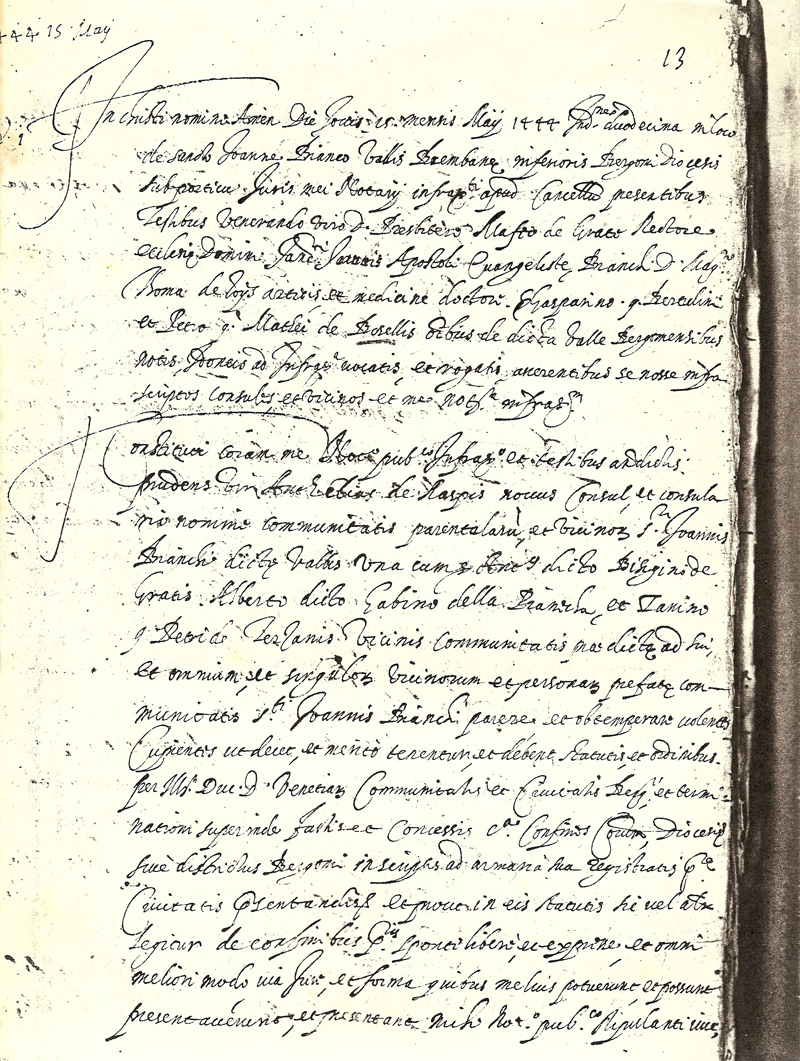 444 15 May
13
1
In Christi nomine Amen Die Jovis 15 mensis Maij 1444 Ind.ne duodecima in loco
de Sancto Joanne Bianco Vallis Brembanę inferioris Bergomi Diocesis
sub porticu Juris mei Notarij infrap.ti apud Cancellũ presentibus
Testibus Venerando viro D. Presbitero Mafeo de Grate Rectore
Ecclesię Domini Sancti Joannis Apostoli Evangelistę Bianchi D. Mag.ro
Thoma de artis et medicine doctore Gasparino q. Bertulini
et Petro q. Mathei de Bosellis oibus de dicta Valle Bergomensibus
notis, Idoneis ad Infras.ta vocatis, et rogatis, asserentibus se nosse infra
scriptos Consules et vicinos et me Not.m infras.m
Constituti coram me Noto pub.co Infras.o et testibus antdictis
prudens vir de Raspis novus Consul, et consula
rio nomine communitatis parentelarũ, et vicinoꝝ S.ti Joannis
Bianchi dictę Vallis una cum dicto Bisgino de
Gratis Alberto dicto Gabino della Biancha, et Zanino
q. Petri de Terzanis Vicinis communitatis prædictę ad hui,
et omnium, et singuloꝝ Vicinorum et personaꝝ prefatę com-
munitatis S.ti Joannis Bianchi parere et obtemperare volentes
Cupientes ut decet, et merito tenentur, et debent statutis et ordinibus
per Ill. Duc. D. Venetiaꝝ Communitatis et Civitatis Berg.i et termi-
nationi superinde factis et Concessis Confines Diocesis
sive districtus Bergomi in scriptis ad armaria sua registratis
Civitatis p̃sentandis et prout in eis statutis sic vel alr̃
legitur de confinibus sponte libere, et expresse, et omni
meliori modo via Jure, et forma quibus melius potuerunt et possunt
presentaverunt, et presentant mihi Not.o pub.co stipulanti vice,